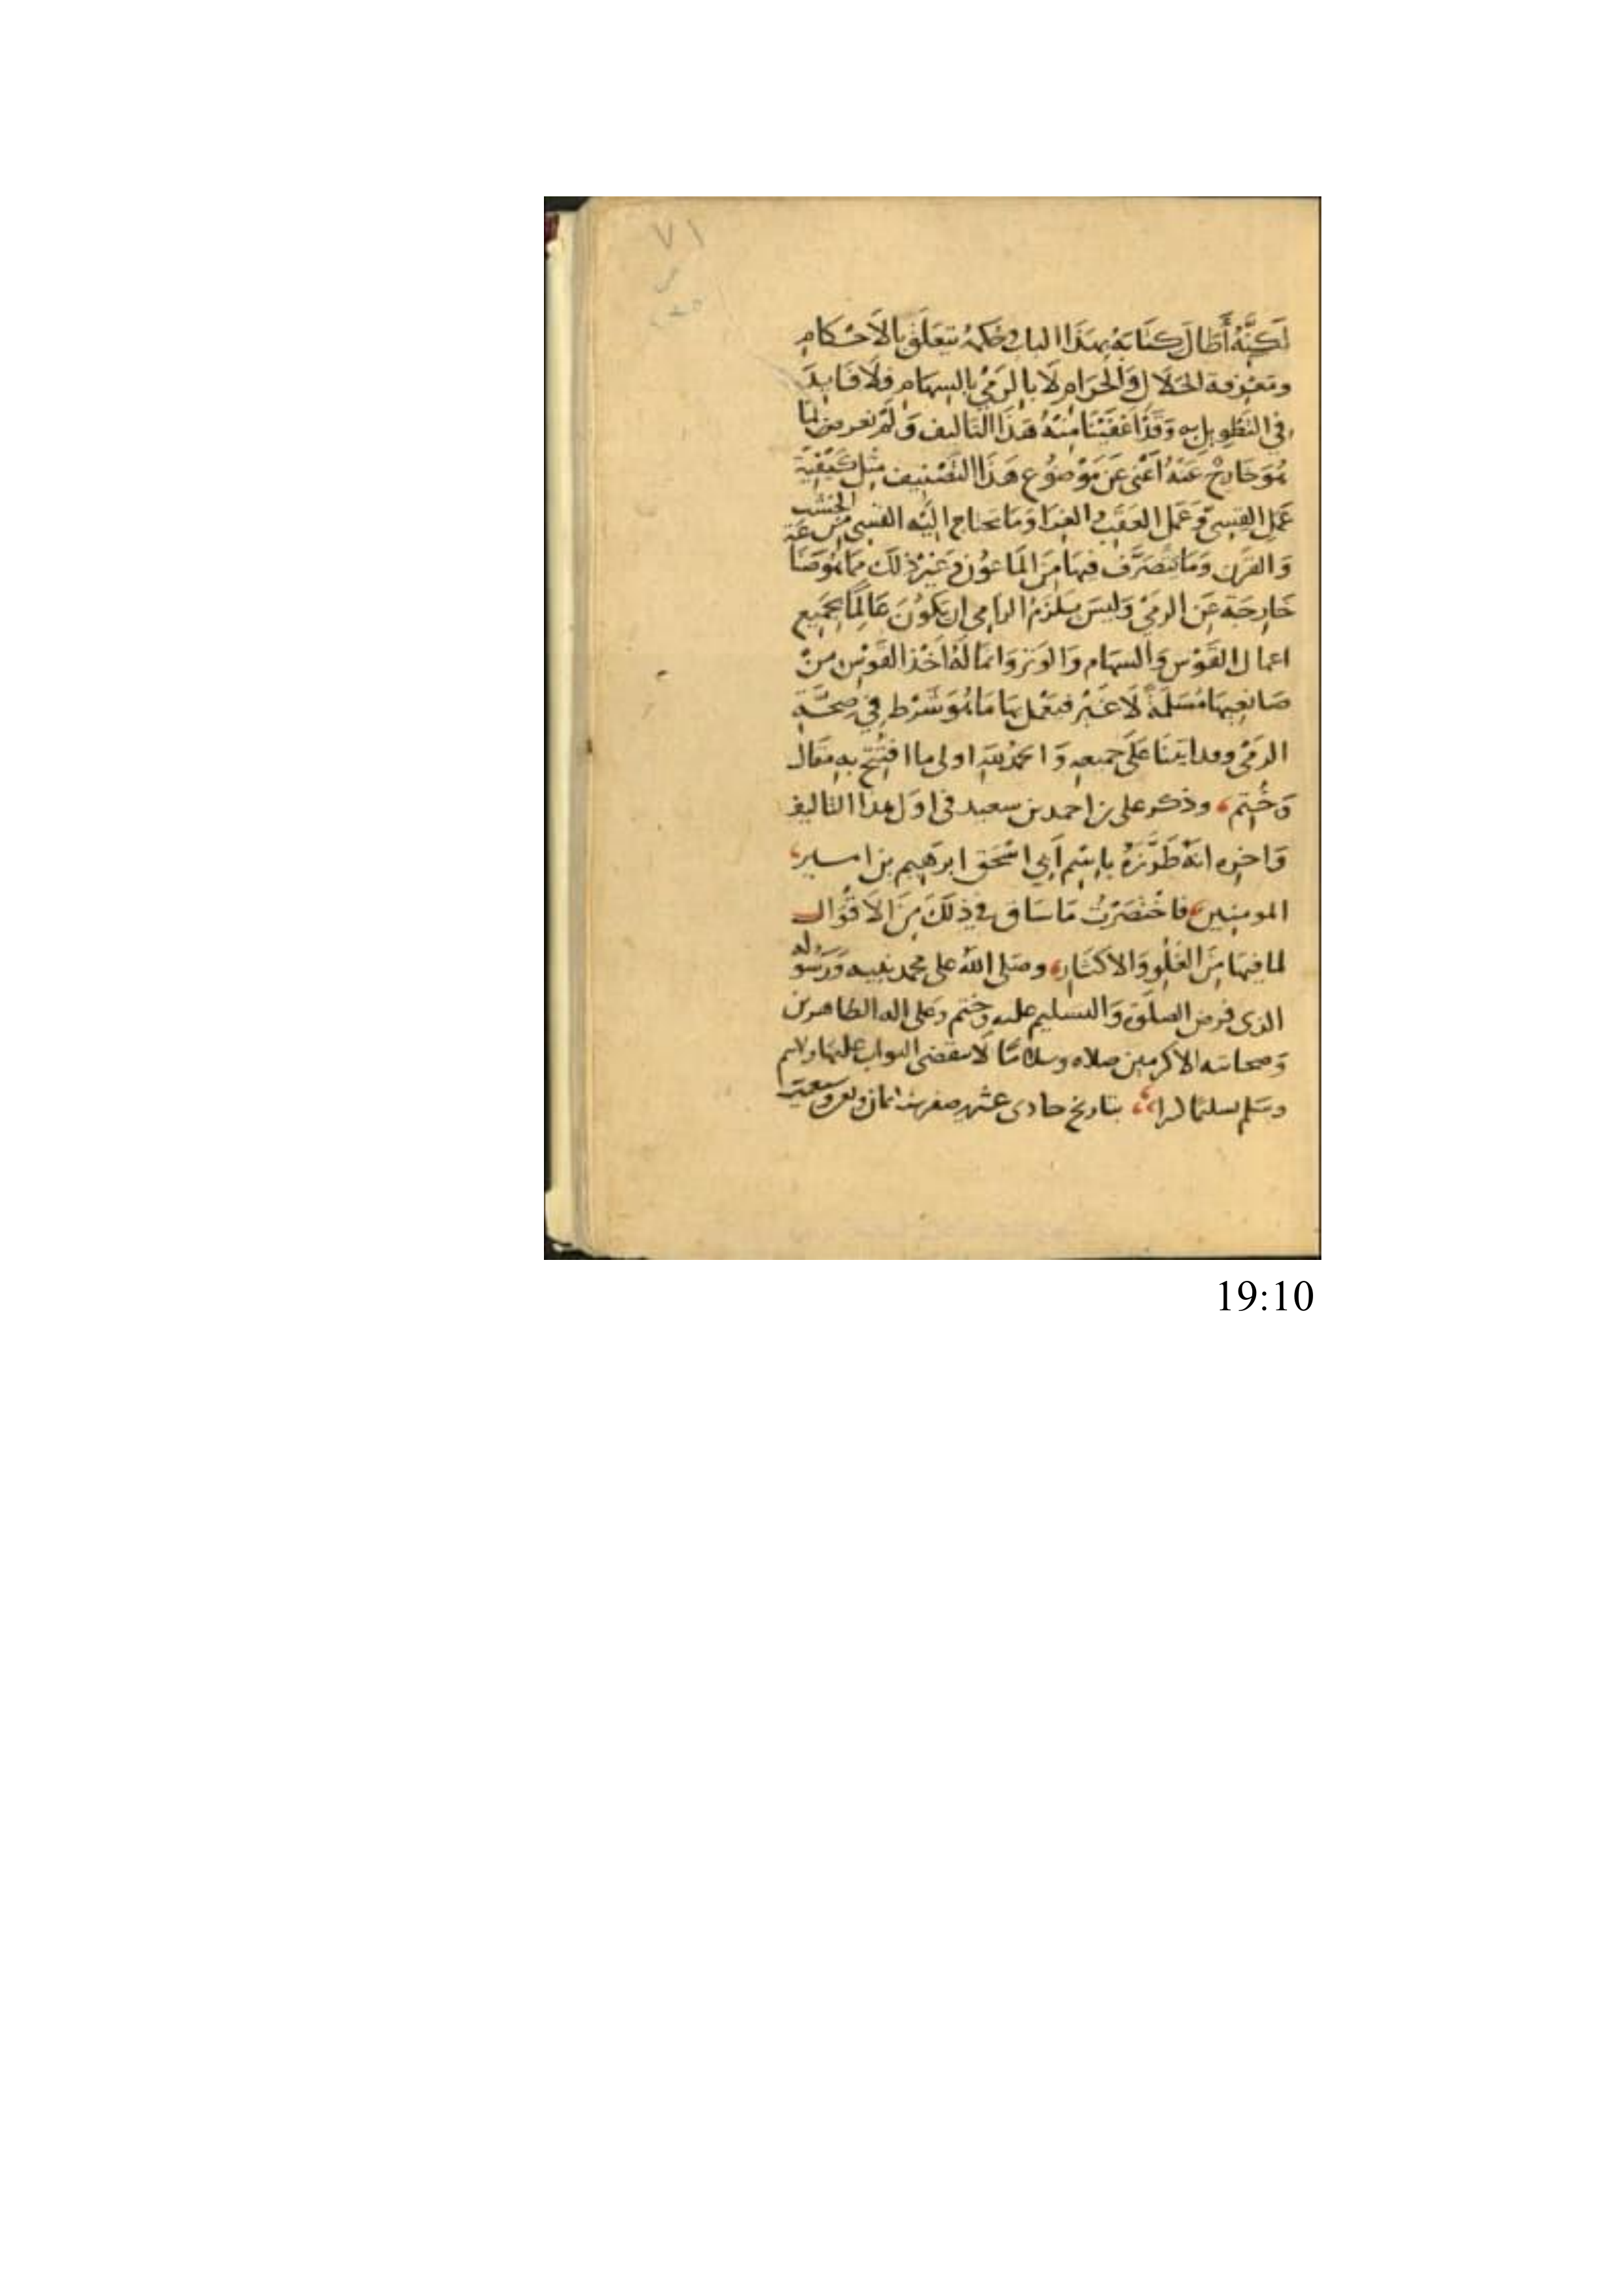 ٧١
لَكِنَّهُ أَطَالَ كِتَابَهُ بِهَذَا الباب وحُكمُهُ يتعَلَّق بالأَحْكَامِ
ومَعْرِفة الحَلَالِ وَالحَرَامِ لَا بِالرَمْيِ بِالسِهَامِ فلَا فَايِدَة
في التَطْوِيلِ بِهِ وَقَدْ اعْفَيْنَا مِنْهُ هَذَا التاليف وَلَمْ نعرض لِمَا
هُوَ خَارِجٌ عَنْهُ اعْنى عَنْ مَوْضُوع هَذَا التَصْنِيف مِثل كَيْفِيَّة
عَمَلِ القِسِيّ وَعَمَل العَقَبْ والغِرَا وَمَا يحتاج الَيْه القسى مِنَ الخَشَب
وَالقَرْن وَمَا يَتَصَرَّف فيهَا مِنَ المَاعُون وَغَيْر ذلَك مِمَا هُوَ صَنَاعَة
خَارِجَة عَن الرمَيْ وَلَيسَ يَلزَمُ الرامِي ان يكونَ عَالِمًا بِجَمِيع
اعمال القَوْس وَالسهَام وَالوَتَر وَانمَا لَهُ اخَذ القَوْسِ مِنْ
صَانِعِهَا مُسَلَّمَةً لَا غَيْر فيَعْمَل بهَا مَا هُوَ شَرْط فِي صِحَّةِ
الرمَيْ وقد اتينَا عَلَى جميعه وَالحمْدُ للَّهِ اولى ما افتُتِحَ بِهِ مقَال
وَخُتِمَ وذكر على بن احمد بن سعيد فى اوّل هذا التاليف
وَاخِرِه انهُ طَرَّزَهُ بِاسْمِ أَبِي اسْحَق ابرهيم بن امير
المومنِين فاخْتَصَرْتُ مَا سَاق في ذلَكَ مِنَ الاَقْوَال
لما فيهَا مِنَ الغُلُو وَالاكثَار وصَلى اللهُ على محمد نبيه وَرَسُوله
الذى فرض الصلَوة وَالتسليم عليه وختم وَعلى اله الطاهرين
وَصحابته الاكرمين صلاه وسلامًا لَا ينقضى الثواب عليهَا
وسَلم تسليمًا بتاريخ حادى عشر صفر سنة ثمان
19:10